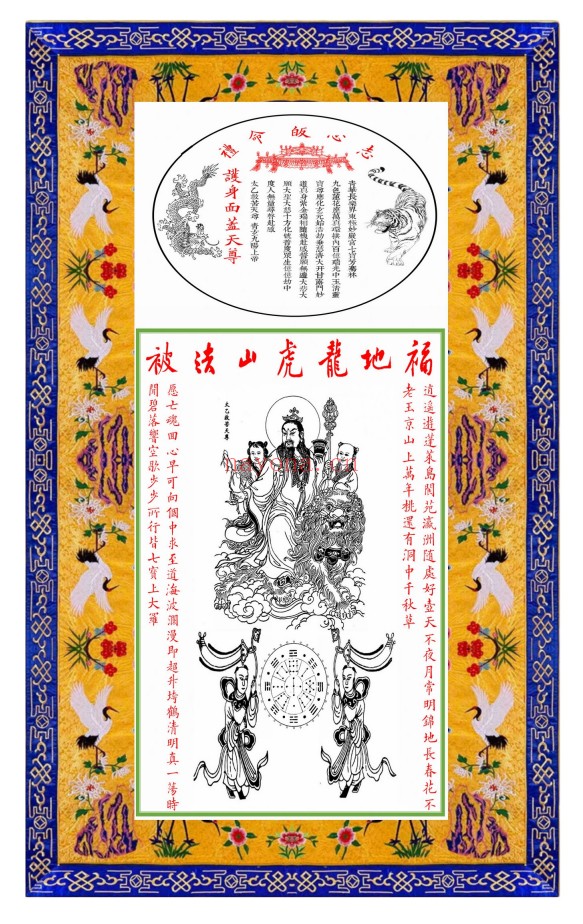 志心皈命禮
青華長樂界東極妙嚴宮七寶芳騫林
九色蓮花座萬真環拱內百億瑞光中玉清靈
寶尊應化玄元始浩劫垂慈濟大開甘露門妙
道真身紫金瑞相隨機赴感誓願無邊大悲大
願大聖大慈十方化號普度眾生億億劫中
度人無量尋聲赴感
太乙救苦天尊 青玄九陽上帝
護身而蓋天尊
福地龍虎山法被
逍遥遊蓬萊島閬苑瀛洲随處好壺天不夜月常明錦地長春花不
老玉京山上萬年桃還有洞中千秋草
太乙救苦天尊
愿亡魂回心早可向個中求至道海波瀾漫即超升培鶴清明真一蕩時
聞碧落響空歌步步所行皆七寶上大羅